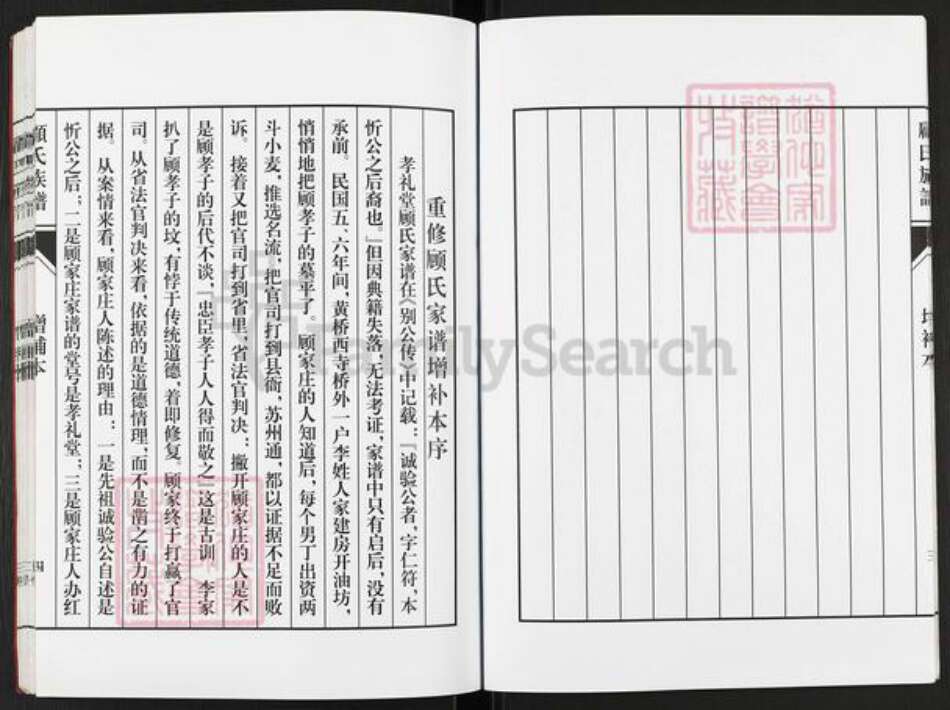 顾氏族谱
增补本
三
譜學會
收藏
重修顾氏家谱增补本序
孝礼堂顾氏家谱在《别公传》中记载：『诚验公者，字仁符，本
忻公之后裔也。』但因典籍失落，无法考证，家谱中只有启后，没有
承前。民国五、六年间，黄桥西寺桥外一户李姓人家建房开油坊，
悄悄地把顾孝子的墓平了。顾家庄的人知道后，每个男丁出资两
斗小麦，推选名流，把官司打到县衙，苏州通，都以证据不足而败
诉。接着又把官司打到省里，省法官判决：撇开顾家庄的人是不
是顾孝子的后代不谈，『忠臣孝子人人得而敬之』这是古训 李家
扒了顾孝子的坟，有悖于传统道德，着即修复。顾家终于打赢了官
司。从省法官判决来看，依据的是道德情理，而不是凿之有力的证
据。从案情来看，顾家庄人陈述的理由：一是先祖诚验公自述是
忻公之后；二是顾家庄家谱的堂号是孝礼堂；三是顾家庄人办红
顾氏族谱
增补本
FamilySearch